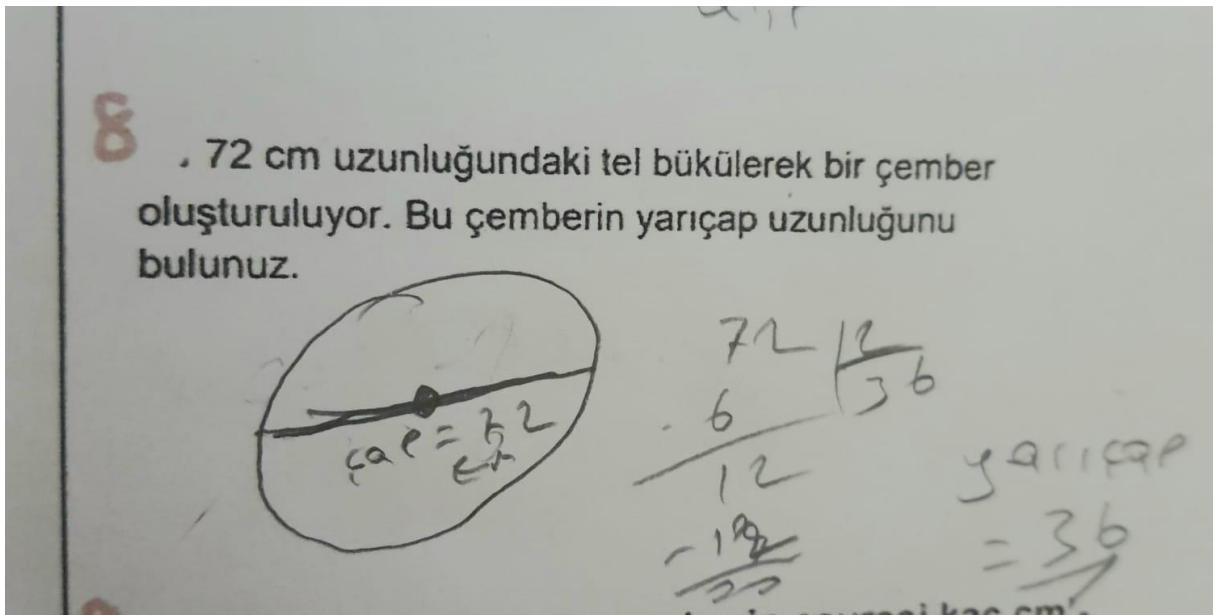 8
. 72 cm uzunluğundaki tel bükülerek bir çember
oluşturuluyor. Bu çemberin yarıçap uzunluğunu
bulunuz.
çap = 72
cm
72 2
36
6
12
yarıçap
= 36